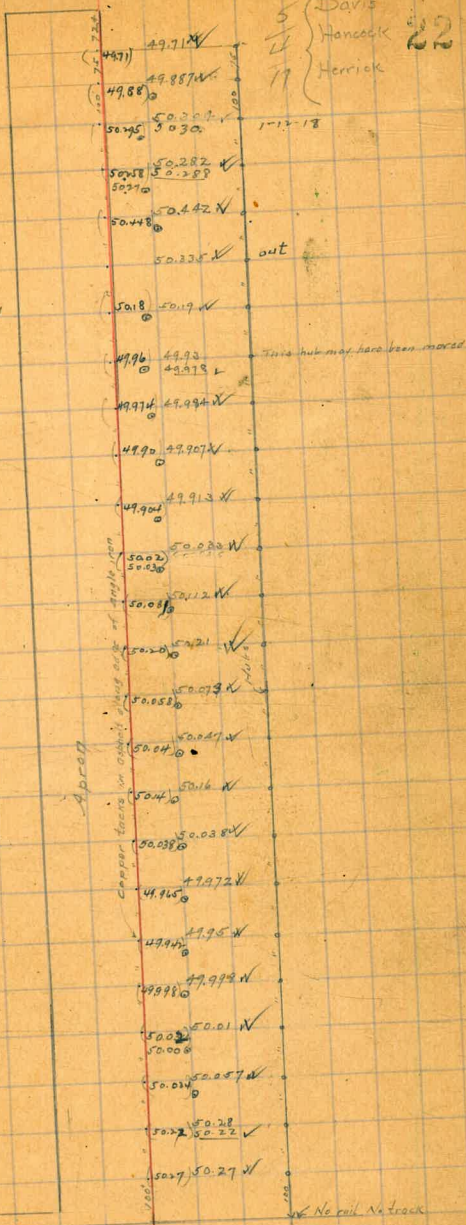 Davis
Hancock
Herrick
22
1-12-18
(49.71) 49.71
(49.88) 49.887
50.295 50.302
50.30
50.258 50.282
50.27 50.288
50.448 50.442
50.235 out
50.18 50.19
49.96 49.93 This hub may have been moved
49.978
49.974 49.984
49.90 49.907
49.904 49.913
50.02 50.033
50.03
50.081 50.112
50.20 50.21
50.058 50.073
50.04 50.047
50.14 50.16
50.038 50.038
49.965 49.972
49.942 49.95
49.998 49.999
50.01
50.006
50.034 50.057
50.22 50.28
50.22
50.27 50.27
100' 100
No rail No track
Apron
Copper tacks in asphalt along edge of angle iron
Hubs